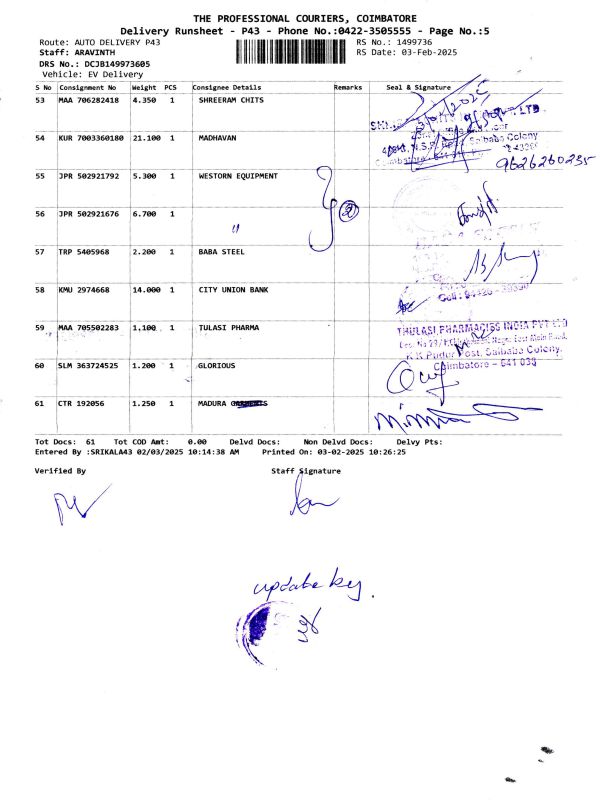 THE PROFESSIONAL COURIERS, COIMBATORE
Delivery Runsheet - P43 - Phone No.:0422-3505555 - Page No.:5
Route: AUTO DELIVERY P43 RS No.: 1499736
Staff: ARAVINTH RS Date: 03-Feb-2025
DRS No.: DCJB149973605
Vehicle: EV Delivery
S No Consignment No Weight PCS Consignee Details Remarks Seal & Signature
53 MAA 706282418 4.350 1 SHREERAM CHITS
LTD
54 KUR 7003360180 21.100 1 MADHAVAN
Saibaba Colony
Coimbatore
9626260235
55 JPR 502921792 5.300 1 WESTORN EQUIPMENT
56 JPR 502921676 6.700 1 "
2
57 TRP 5405968 2.200 1 BABA STEEL
58 KMU 2974668 14.000 1 CITY UNION BANK
Cell :
59 MAA 705502283 1.100 1 TULASI PHARMA
THULASI PHARMACIES INDIA PVT LTD
East Main Road,
K.K Pudur Post, Saibaba Colony,
Coimbatore - 641 038
60 SLM 363724525 1.200 1 GLORIOUS
61 CTR 192056 1.250 1 MADURA GARMENTS
Tot Docs: 61 Tot COD Amt: 0.00 Delvd Docs: Non Delvd Docs: Delvy Pts:
Entered By :SRIKALA43 02/03/2025 10:14:38 AM Printed On: 03-02-2025 10:26:25
Verified By Staff Signature
update by.